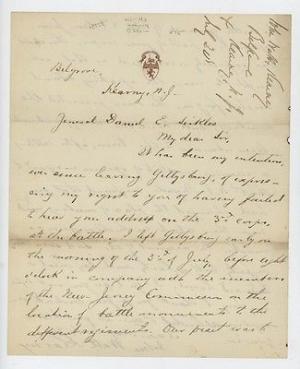 Belgrove,
Kearny, N. J.
General Daniel E. Sickles
My dear Sir,
It has been my intention,
ever since leaving Gettysburg, of expres-
sing my regret to you of having failed
to hear your address on the 3rd Corps,
at the battle. I left Gettysburg early on
the morning of the 3rd of July, before eight
o'clock in company with the members
of the New-Jersey Commission on the
location of battle monuments to the
different regiments. Our first visit
Kearny
Belgrove
Kearny, N. J.
July